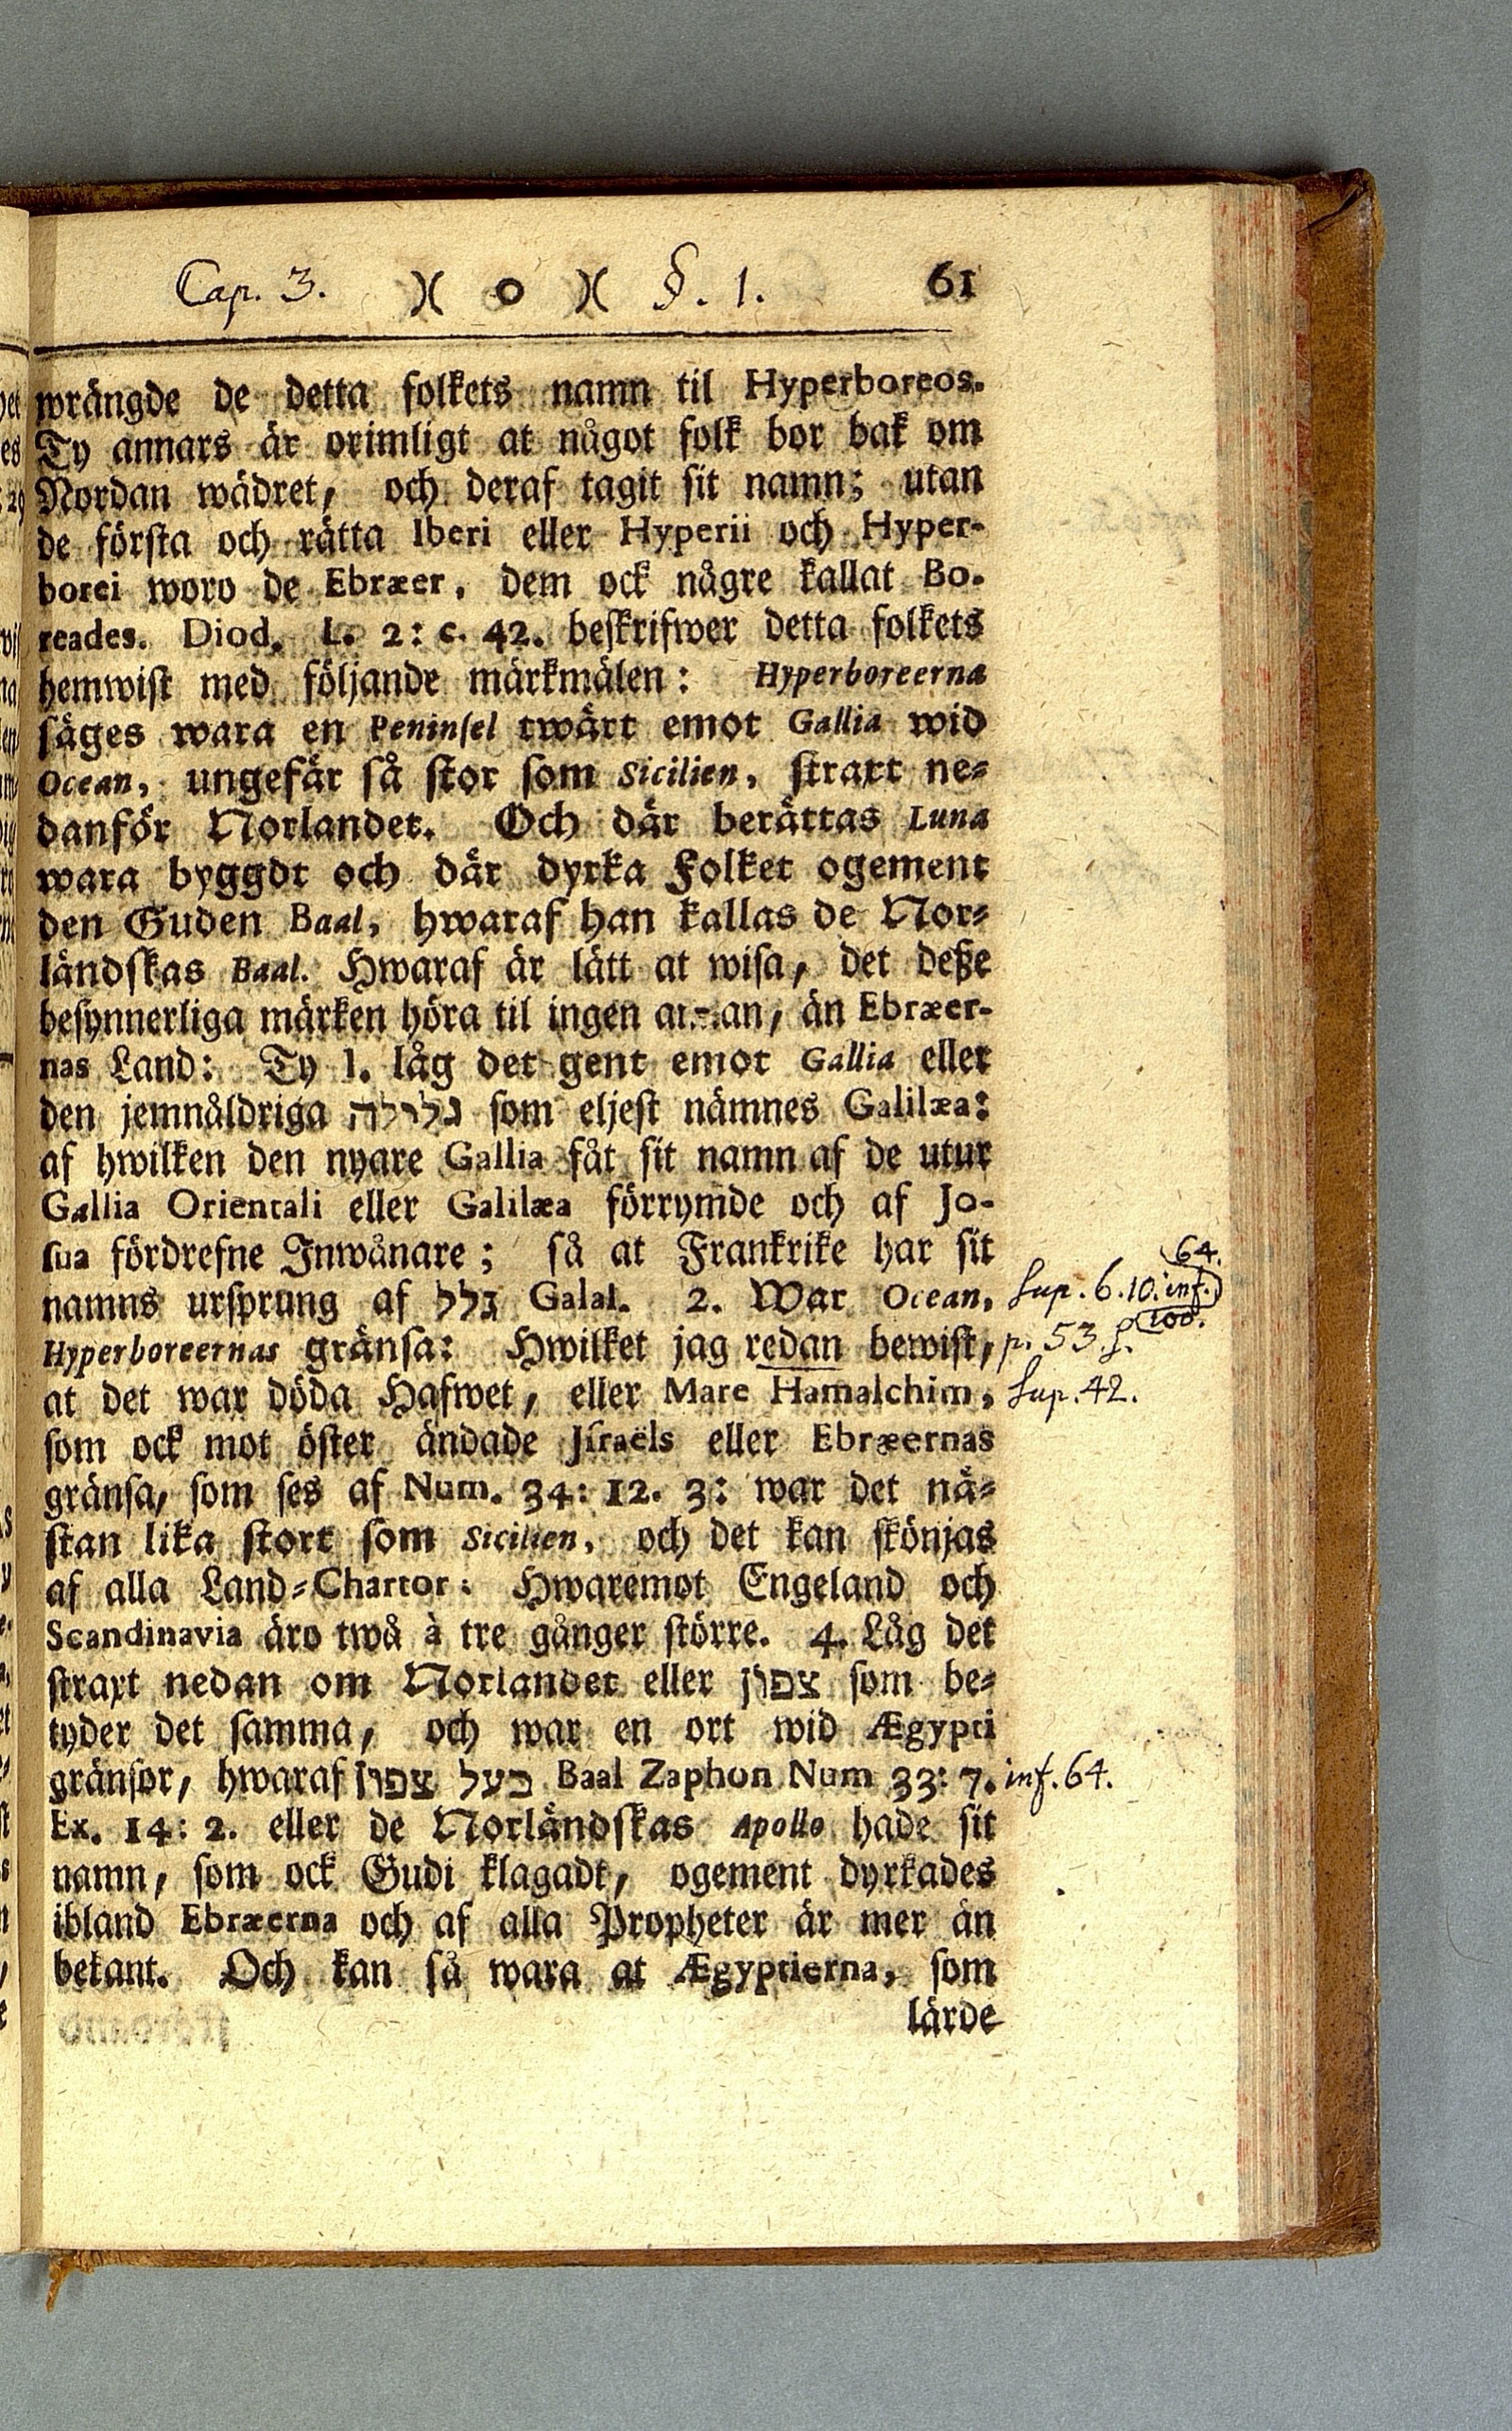 Cap. 3. )( o )( §. 1. 61
wrängde de detta folkets namn til Hyperboreos.
Ty annars är orimligt at något folk bor bak om
Nordan wädret, och deraf tagit sit namn; utan
de första och rätta Iberi eller Hyperii och Hyper-
borei woro de Ebræer, dem ock någre kallat Bo-
reades. Diod. L. 2: c. 42. beskrifwer detta folkets
hemwist med följande märkmälen: Hyperboreerna
säges wara en Peninsel twärt emot Gallia wid
Ocean, ungefär så stor som Sicilien, straxt ne-
danför Norlandet. Och där berättas Luna
wara byggdt och där dyrka Folket ogement
den Guden Baal, hwaraf han kallas de Nor-
ländskas Baal. Hwaraf är lätt at wisa, det deße
besynnerliga märken höra til ingen annan, än Ebræer-
nas Land: Ty 1. låg det gent emot Gallia eller
den jemnåldriga גלולה som eljest nämnes Galilæa:
af hwilken den nyare Gallia fåt sit namn af de utur
Gallia Orientali eller Galilæa förrymde och af Jo-
sua fördrefne Inwånare; så at Frankrike har sit
namns ursprung af גלל Galal. 2. War Ocean,
Hyperboreernas gränsa: Hwilket jag redan bewist,
at det war döda Hafwet, eller Mare Hamalchim,
som ock mot öster ändade Jsraëls eller Ebræernas
gränsa, som ses af Num. 34: 12. 3: war det nä-
stan lika stort som Sicilien, och det kan skönjas
af alla Land-Chartor: Hwaremot Engeland och
Scandinavia äro twå à tre gånger större. 4. Låg det
straxt nedan om Norlandet eller צפון som be-
tyder det samma, och war en ort wid Ægypti
gränsor, hwaraf בעל צפון Baal Zaphon Num 33: 7.
Ex. 14: 2. eller de Norländskas Apollo hade sit
namn, som ock Gudi klagadt, ogement dyrkades
ibland Ebræerna och af alla Propheter är mer än
bekant. Och kan så wara at Ægyptierna, som
lärde
64.
Sup. 6. 10. inf.
100.
p. 53.
Sup. 42.
inf. 64.